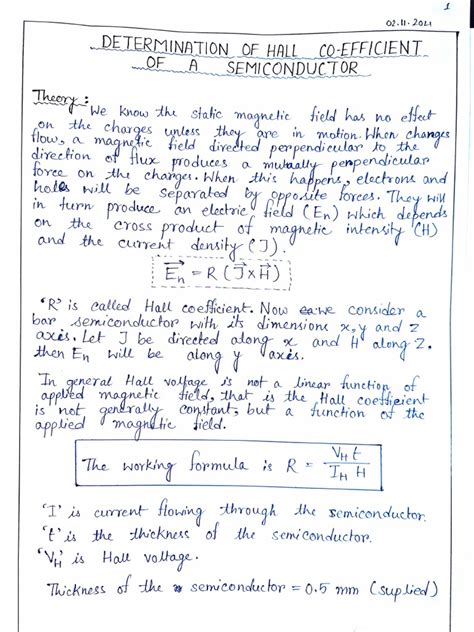 1
02.11.2021
DETERMINATION OF HALL CO-EFFICIENT
OF A SEMICONDUCTOR
Theory:
We know the static magnetic field has no effect
on the charges unless they are in motion. When changes
flow, a magnetic field directed perpendicular to the
direction of flux produces a mutually perpendicular
force on the charges. When this happens, electrons and
holes will be separated by opposite forces. They will
in turn produce an electric field (En) which depends
on the cross product of magnetic intensity (H)
and the current density (J).
→En = R (→J × →H)
'R' is called Hall coefficient. Now we consider a
bar semiconductor with its dimensions x, y and z
axis. Let J be directed along x and H along Z.
then En will be along y axis.
In general Hall voltage is not a linear function of
applied magnetic field, that is the Hall coefficient
is not generally constant, but a function of the
applied magnetic field.
The working formula is R = VH t / IH H
'I' is current flowing through the semiconductor.
't' is the thickness of the semiconductor.
'VH' is Hall voltage.
Thickness of the semiconductor = 0.5 mm (suplied)